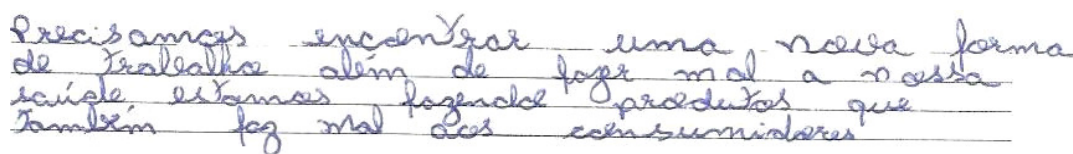 Precisamos encontrar uma nova forma
de trabalho além de fazer mal a nossa
saúde, estamos fazendo produtos que
também faz mal aos consumidores